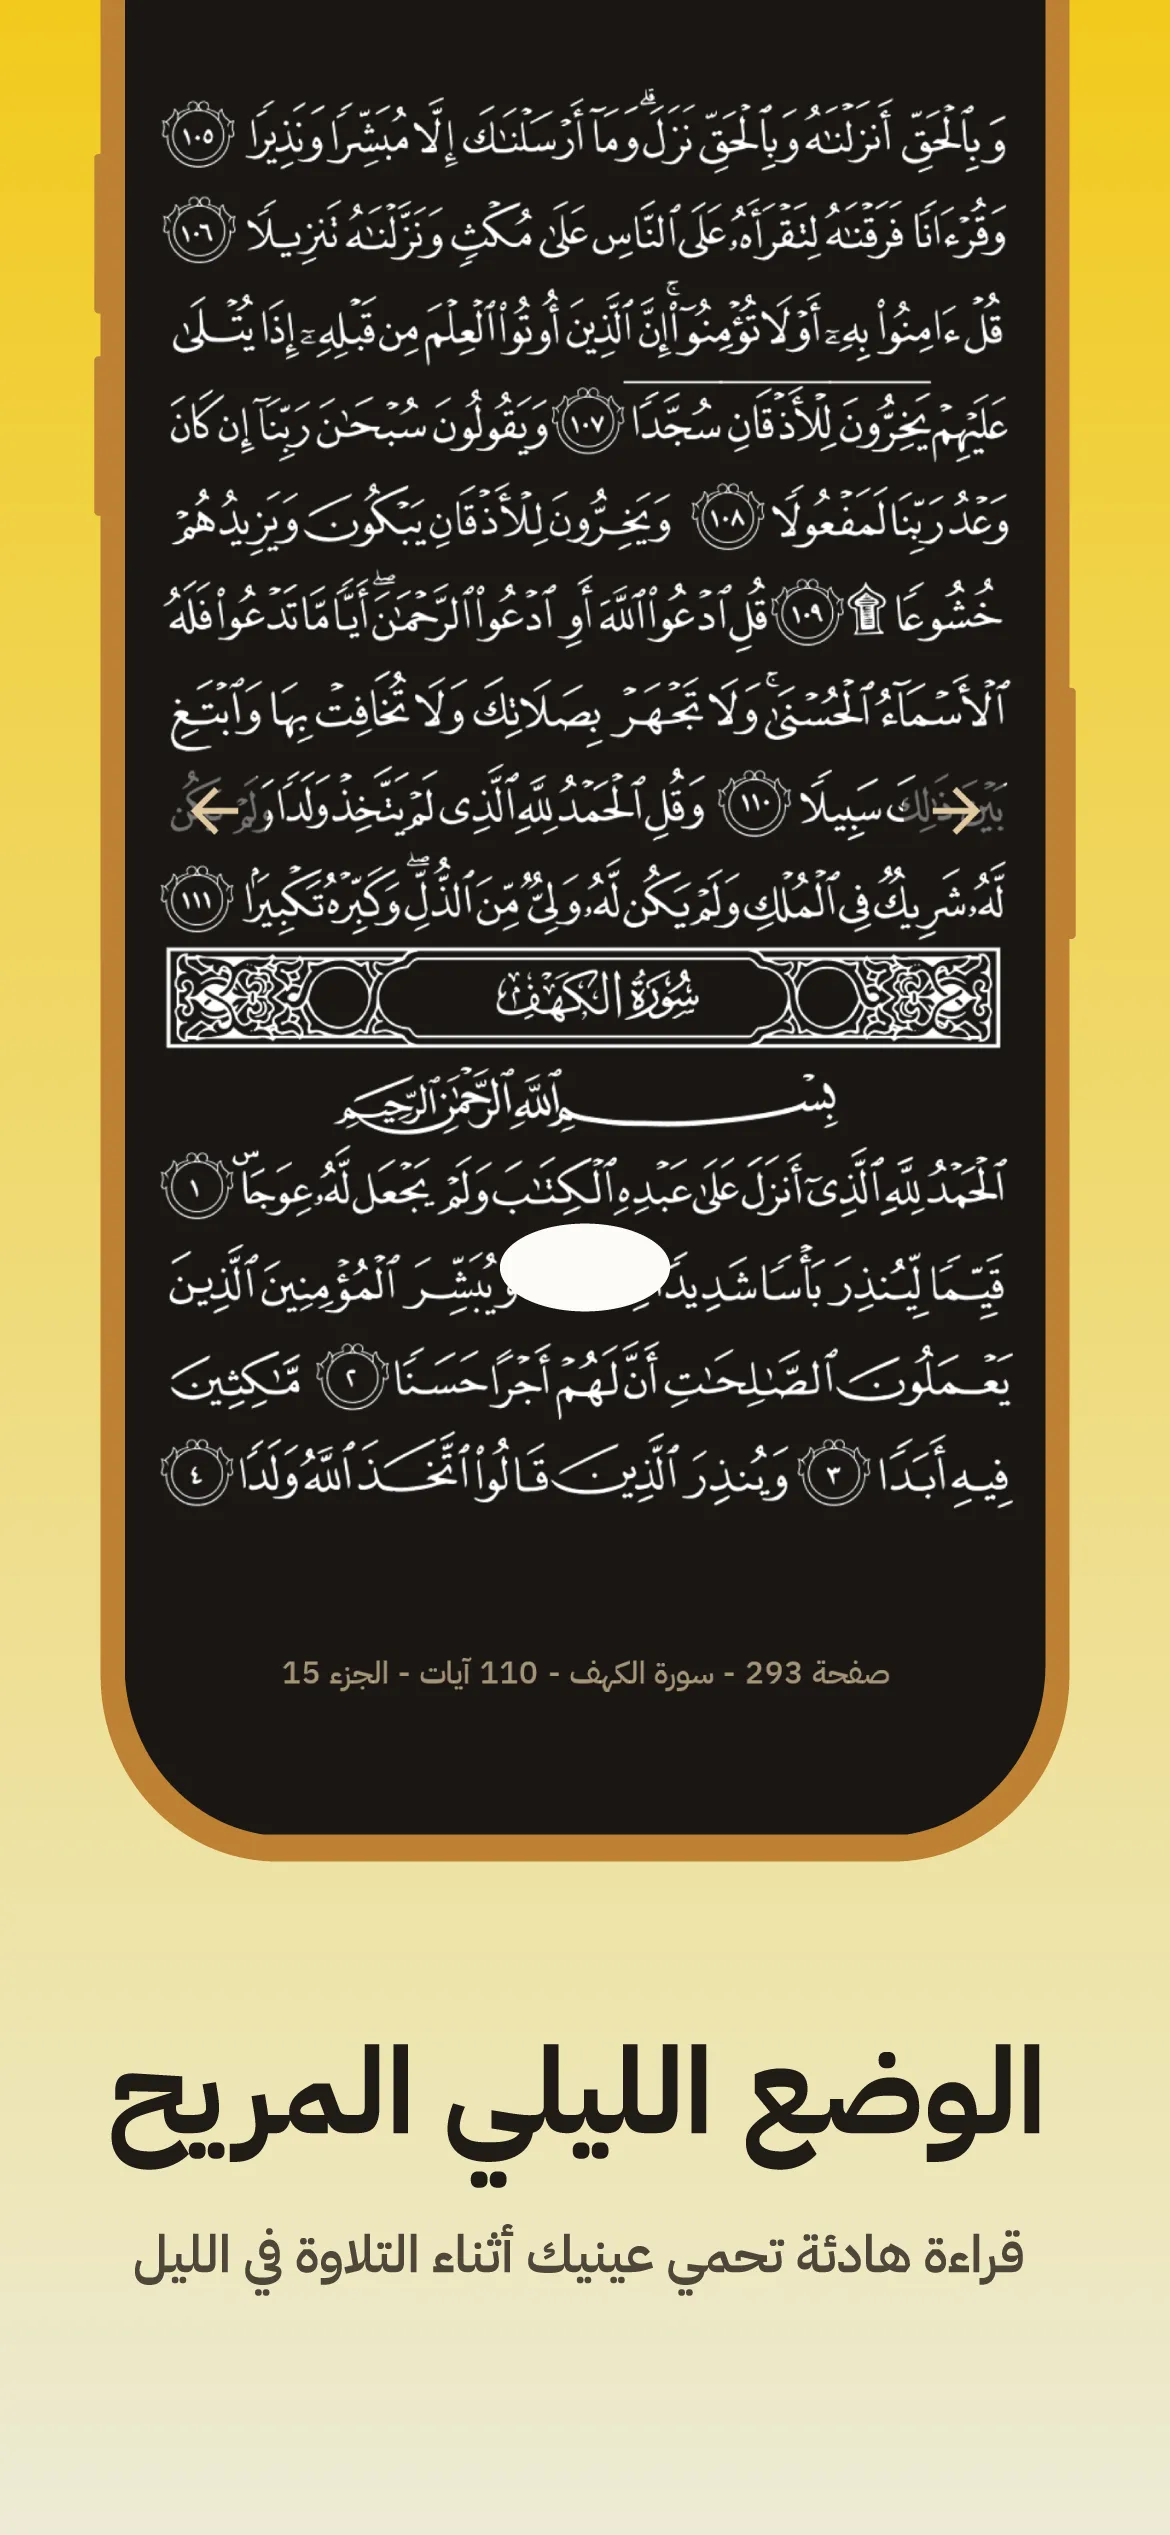 وَبِٱلْحَقِّ أَنزَلْنَٰهُ وَبِٱلْحَقِّ نَزَلَ ۗ وَمَآ أَرْسَلْنَٰكَ إِلَّا مُبَشِّرًا وَنَذِيرًا ١٠٥
وَقُرْءَانًا فَرَقْنَٰهُ لِتَقْرَأَهُۥ عَلَى ٱلنَّاسِ عَلَىٰ مُكْثٍ وَنَزَّلْنَٰهُ تَنزِيلًا ١٠٦
قُلْ ءَامِنُوا۟ بِهِۦٓ أَوْ لَا تُؤْمِنُوٓا۟ ۚ إِنَّ ٱلَّذِينَ أُوتُوا۟ ٱلْعِلْمَ مِن قَبْلِهِۦٓ إِذَا يُتْلَىٰ
عَلَيْهِمْ يَخِرُّونَ لِلْأَذْقَانِ سُجَّدًا ١٠٧ وَيَقُولُونَ سُبْحَٰنَ رَبِّنَآ إِن كَانَ
وَعْدُ رَبِّنَا لَمَفْعُولًا ١٠٨ وَيَخِرُّونَ لِلْأَذْقَانِ يَبْكُونَ وَيَزِيدُهُمْ
خُشُوعًا ۩ ١٠٩ قُلِ ٱدْعُوا۟ ٱللَّهَ أَوِ ٱدْعُوا۟ ٱلرَّحْمَٰنَ ۖ أَيًّا مَّا تَدْعُوا۟ فَلَهُ
ٱلْأَسْمَآءُ ٱلْحُسْنَىٰ ۚ وَلَا تَجْهَرْ بِصَلَاتِكَ وَلَا تُخَافِتْ بِهَا وَٱبْتَغِ
بَيْنَ ذَٰلِكَ سَبِيلًا ١١٠ وَقُلِ ٱلْحَمْدُ لِلَّهِ ٱلَّذِى لَمْ يَتَّخِذْ وَلَدًا وَلَمْ يَكُن
لَّهُۥ شَرِيكٌ فِى ٱلْمُلْكِ وَلَمْ يَكُن لَّهُۥ وَلِىٌّ مِّنَ ٱلذُّلِّ ۖ وَكَبِّرْهُ تَكْبِيرًۢا ١١١
سُورَةُ الكَهْفِ
بِسْمِ ٱللَّهِ ٱلرَّحْمَٰنِ ٱلرَّحِيمِ
ٱلْحَمْدُ لِلَّهِ ٱلَّذِىٓ أَنزَلَ عَلَىٰ عَبْدِهِ ٱلْكِتَٰبَ وَلَمْ يَجْعَل لَّهُۥ عِوَجَاۜ ١
قَيِّمًا لِّيُنذِرَ بَأْسًا شَدِيدًا وَيُبَشِّرَ ٱلْمُؤْمِنِينَ ٱلَّذِينَ
يَعْمَلُونَ ٱلصَّٰلِحَٰتِ أَنَّ لَهُمْ أَجْرًا حَسَنًا ٢ مَّٰكِثِينَ
فِيهِ أَبَدًا ٣ وَيُنذِرَ ٱلَّذِينَ قَالُوا۟ ٱتَّخَذَ ٱللَّهُ وَلَدًا ٤
صفحة 293 - سورة الكهف - 110 آيات - الجزء 15
الوضع الليلي المريح
قراءة هادئة تحمي عينيك أثناء التلاوة في الليل